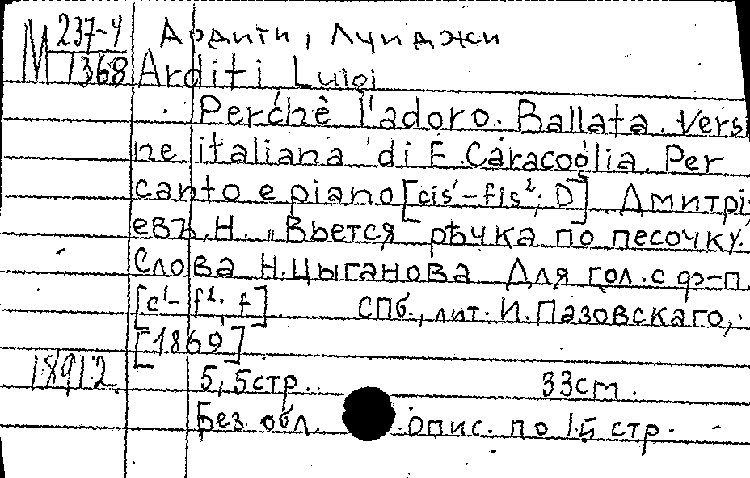 М 237-4
1368
Ардити, Луиджи
Arditi Luigi
Perchè l'adoro. Ballata. Vers
ne italiana di E. Caracoglia. Per
canto e piano [cis'-fis²; D] Дмитрі
евъ, Н. „Вьется рѣчка по песочку.
Слова Н. Цыганова Для гол. с ф-п.
[c'-f²; f] СПб., лит. И. Пазовскаго,
[1869]
18912
5, 5 стр. 33см.
Без обл. опис. по 1й стр.